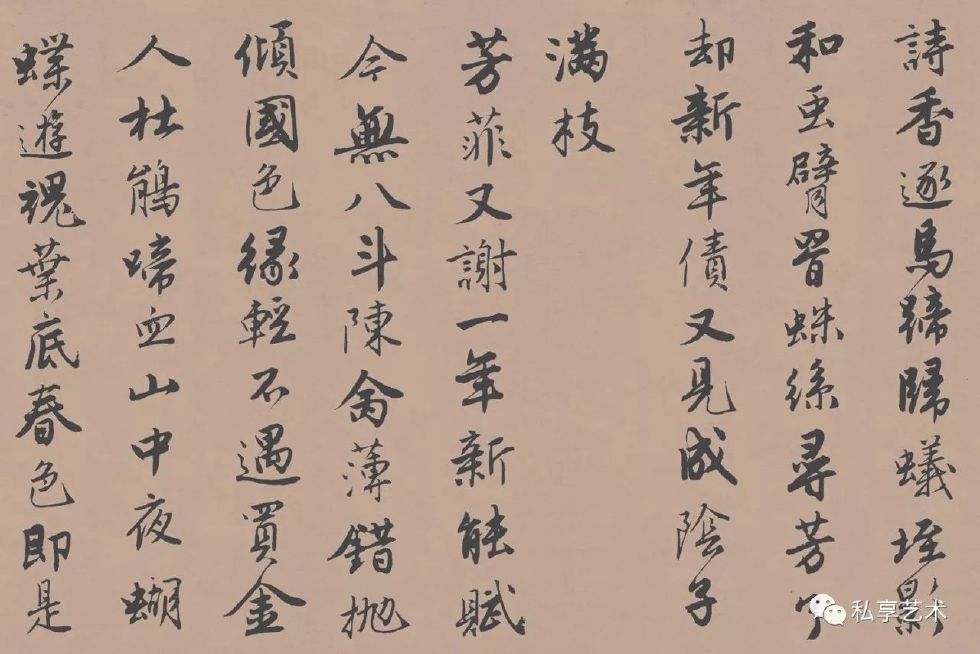 詩香逐馬蹄歸蟻垤影
和虫臂罥蛛絲尋芳了
却新年債又見成陰子
滿枝
芳菲又謝一年新能賦
今無八斗陳禽薄錯抛
傾國色緣輕不遇買金
人杜鵑啼血山中夜蝴
蝶遊魂葉底春色即是
私享艺术